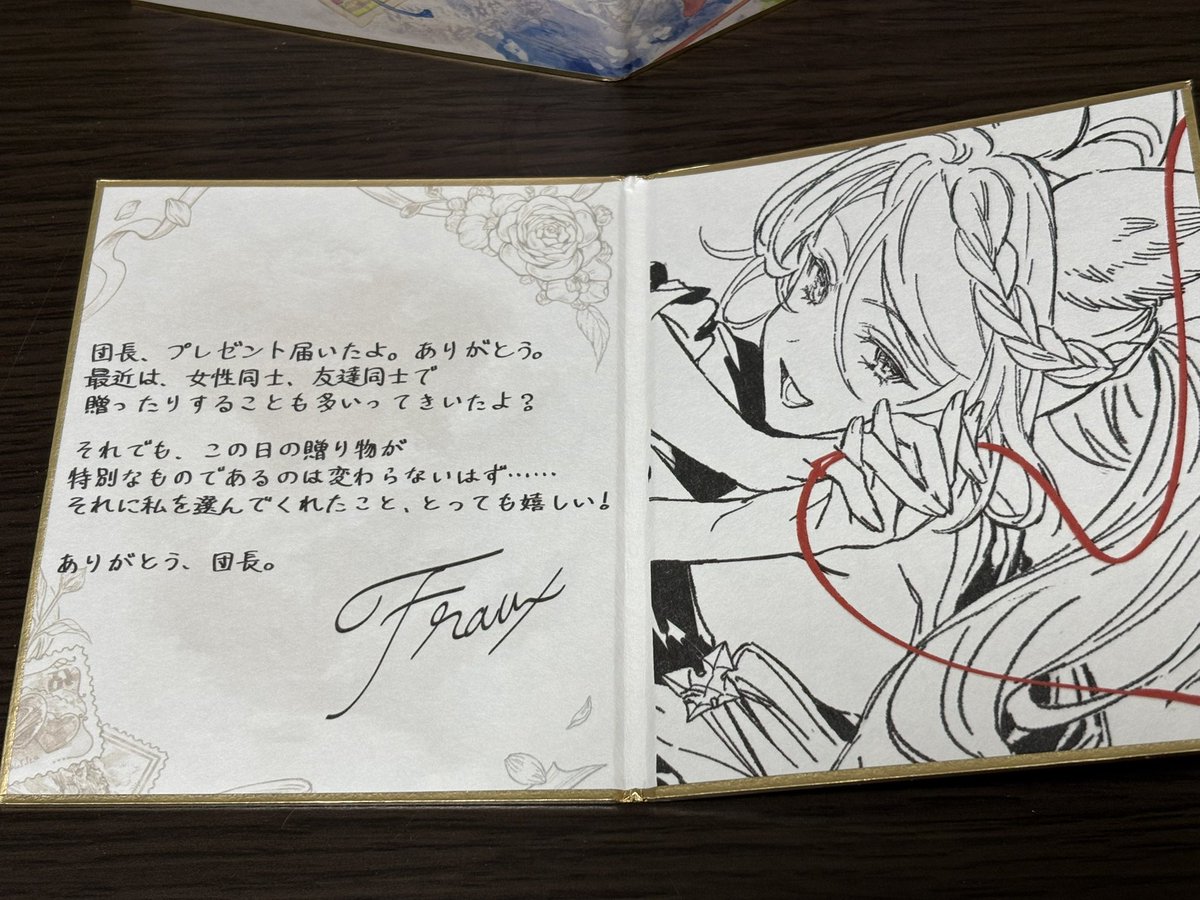 団長、プレゼント届いたよ。ありがとう。
最近は、女性同士、友達同士で
贈ったりすることも多いってきいたよ？
それでも、この日の贈り物が
特別なものであるのは変わらないはず……
それに私を選んでくれたこと、とっても嬉しい！
ありがとう、団長。
Fraux